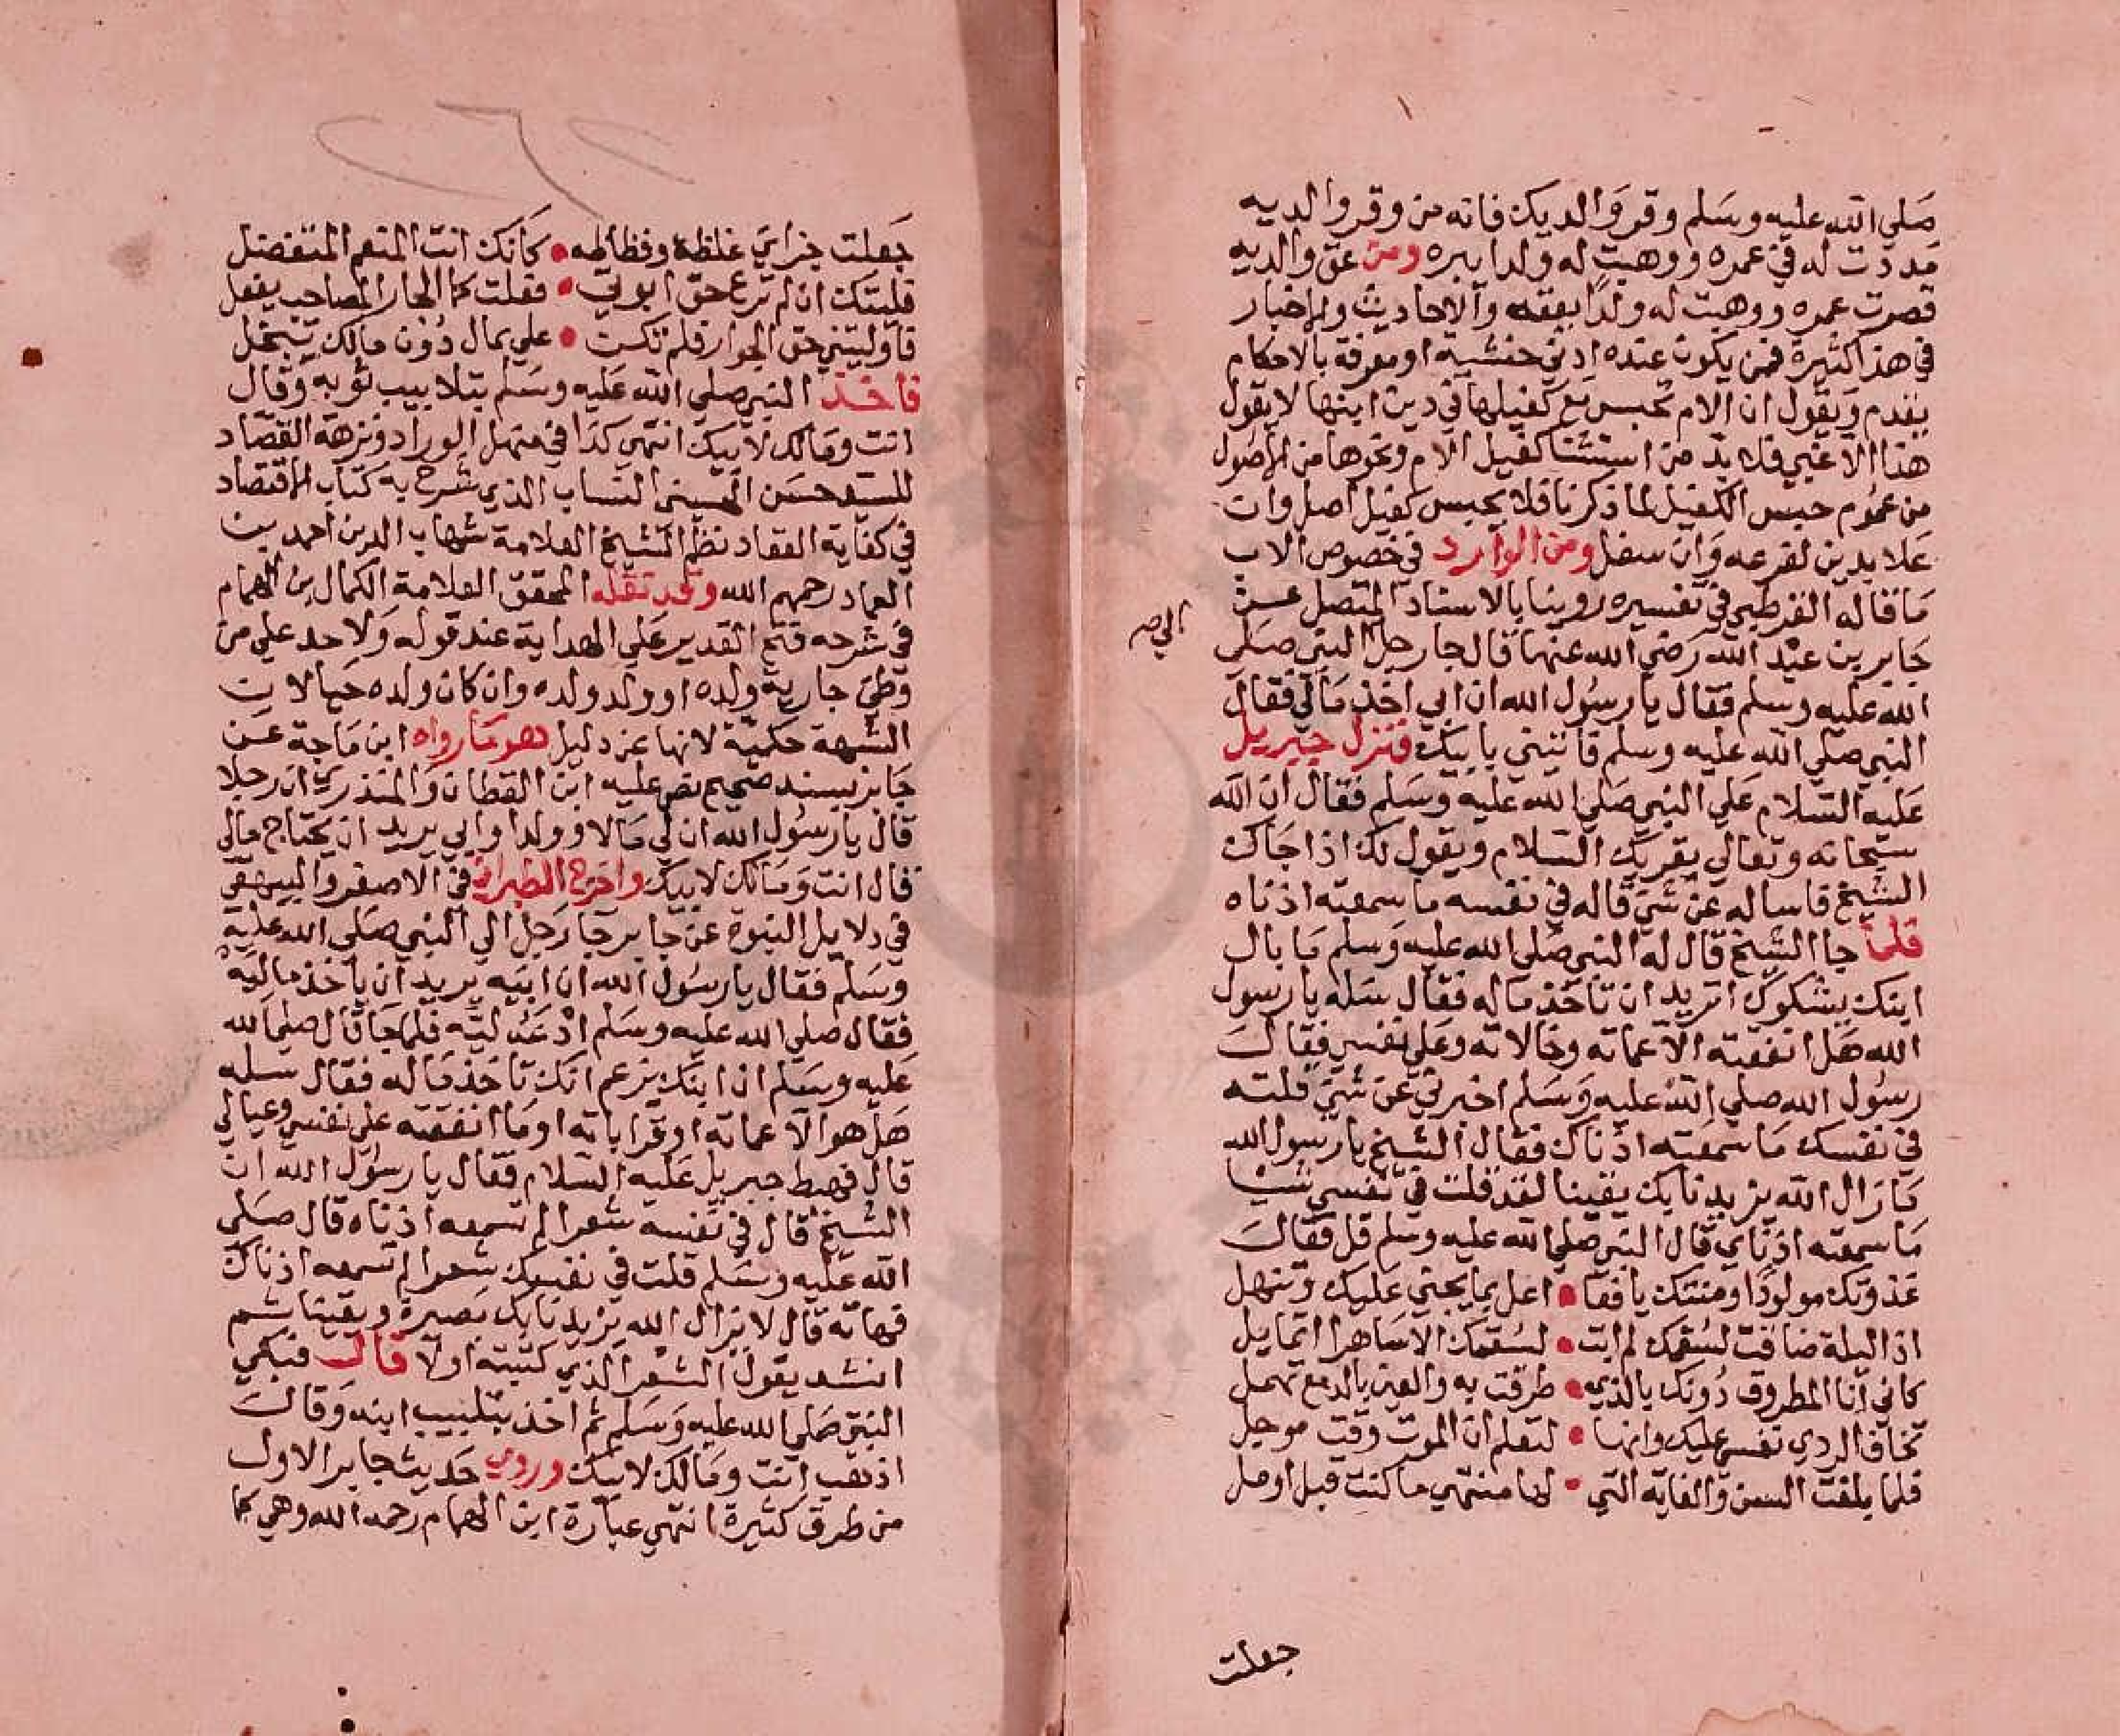 صلي الله عليه وسلم وقر والديك فانه من وقر والديه
مددت له في عمره ووهبت له ولدا يبره ومن عق والديه
قصرت عمره ووهبت له ولدا يعقه والاحاديث والاخبار
في هذا كثيرة فمن يكون عنده ادني خشية او معرفة بالاحكام
يقدم ويقول ان الام تحبس مع كفيلها في دين ابنها لا يقول
هذا الا غبي فلا بد من استثنا كفيل الام ونحوها من الاصول
من عموم حبس الكفيل لما ذكرنا فلا يحبس كفيل اصل وان
علا بدين لفرعه وان سفل ومن الوارد في خصوص الاب
ما قاله القرطبي في تفسيره روينا بالاسناد المتصل عن
جابر بن عبد الله رضي الله عنهما قال جا رجل النبي صلي
الي صح
الله عليه وسلم فقال يا رسول الله ان ابي اخذ مالي فقال
النبي صلي الله عليه وسلم فاتني بابيك فنزل جبريل
عليه السلام علي النبي صلي الله عليه وسلم فقال ان الله
سبحانه وتعالي يقريك السلام ويقول لك اذا جاك
الشيخ فاساله عن شي قاله في نفسه ما سمعته اذناه
فلما جا الشيخ قال له النبي صلي الله عليه وسلم ما بال
ابنك يشكوك اتريد ان تاخذ ماله فقال سله يا رسول
الله هل انفقته الا عماته وخالاته وعلي نفسي فقال
رسول الله صلي الله عليه وسلم اخبرني عن شي قلته
في نفسك ما سمعته اذناك فقال الشيخ يا رسول الله
ما زال الله يزيدنا بك يقينا لقد قلت في نفسي شيا
ما سمعته اذناي قال النبي صلي الله عليه وسلم قل فقال
غذوتك مولودا ومنتك يافعا • اعل بما يجني عليك وتنهل
اذا ليلة ضافت لسقمك لم ابت • لسقمك الا ساهرا اتمايل
كاني انا المطروق دونك بالذي • طرقت به والعين بالدمع تهمل
تخاف الردي نفسي عليك وانها • لتعلم ان الموت وقت موجل
فلما بلغت السن والغاية التي • لها منتهي ما كنت قبل اومل
جعلت
جعلت جزاي غلظة وفظاظه • كانك انت المنعم المتفضل
فليتك ان لم ترع حق ابوتي • فعلت كما الجار المصاحب يفعل
فاوليتني حق الجوار فلم تكن • علي بمال دون مالك تبخل
فاخذ النبي صلي الله عليه وسلم بتلابيب ثوبه وقال
انت ومالك لابيك انتهي كذا في منهل الوراد ونزهة القصاد
للسيد حسن الحسيني النساب الذي شرح به كتاب الاقتصاد
في كفاية العقاد نظم الشيخ العلامة شهاب الدين احمد بن
العماد رحمهم الله وقد نقله المحقق العلامة الكمال بن الهمام
في شرحه فتح القدير علي الهداية عند قوله ولا حد علي من
وطئ جارية ولده او ولد ولده وان كان ولده حيا لان
الشبهة حكمية لانها عن دليل وهو ما رواه ابن ماجة عن
جابر بسند صحيح نص عليه ابن القطان والمنذري ان رجلا
قال يا رسول الله ان لي مالا وولدا وابي يريد ان يحتاج مالي
قال انت ومالك لابيك واخرج الطبراني في الاصغر والبيهقي
في دلايل النبوة عن جابر جا رجل الي النبي صلي الله عليه
وسلم فقال يا رسول الله ان ابيه يريد ان ياخذ ماليه
فقال صلي الله عليه وسلم ادعه ليه فلما جا قال صلي الله
عليه وسلم ان ابنك يزعم انك تاخذ ماله فقال سله
هل هو الا عماته او قراباته او ما انفقه علي نفسي وعيالي
قال فهبط جبريل عليه السلام فقال يا رسول الله ان
الشيخ قال في نفسه شعرا لم تسمعه اذناه قال صلي
الله عليه وسلم قلت في نفسك شعرا لم تسمعه اذناك
فهاته قال لا يزال الله يزيدنا بك بصيرة ويقينا ثم
انشد يقول الشعر الذي كتبته اولا قال فبكي
النبي صلي الله عليه وسلم ثم اخذ بتلبيب ابنه وقال
اذهب انت ومالك لابيك وروي حديث جابر الاول
من طرق كثيرة انتهي عبارة ابن الهمام رحمه الله وهي كما